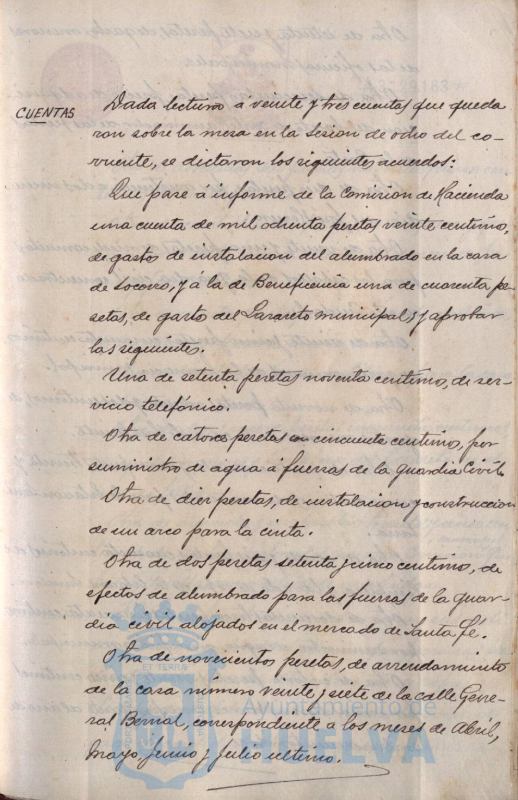 CUENTAS
Dada lectura á veinte y tres cuentas que queda
ron sobre la mesa en la Sesion de ocho del co-
rriente, se dictaron los siguientes acuerdos:
Que pase á informe de la Comision de Hacienda
una cuenta de mil ochenta pesetas veinte centimos,
de gastos de instalacion del alumbrado en la casa
de Socorro, y á la de Beneficencia una de cuarenta pe-
setas, de gasto del Lazareto municipal; y aprobar
las siguientes.
Una de setenta pesetas noventa centimos, de ser-
vicio telefónico.
Otra de catorce pesetas con cincuenta centimos, por
suministro de agua á fuerzas de la guardia Civil.
Otra de diez pesetas, de instalacion y construccion
de un arco para la cinta.
Otra de dos pesetas setenta y cinco centimos, de
efectos de alumbrado para las fuerzas de la guar-
dia civil alojados en el mercado de Santa Fé.
Otra de novecientos pesetas, de arrendamiento
de la casa número veinte y siete de la calle Gene-
ral Bernal, correspondiente a los meses de Abril,
Mayo, Junio y Julio ultimo.
Ayuntamiento de
HUELVA